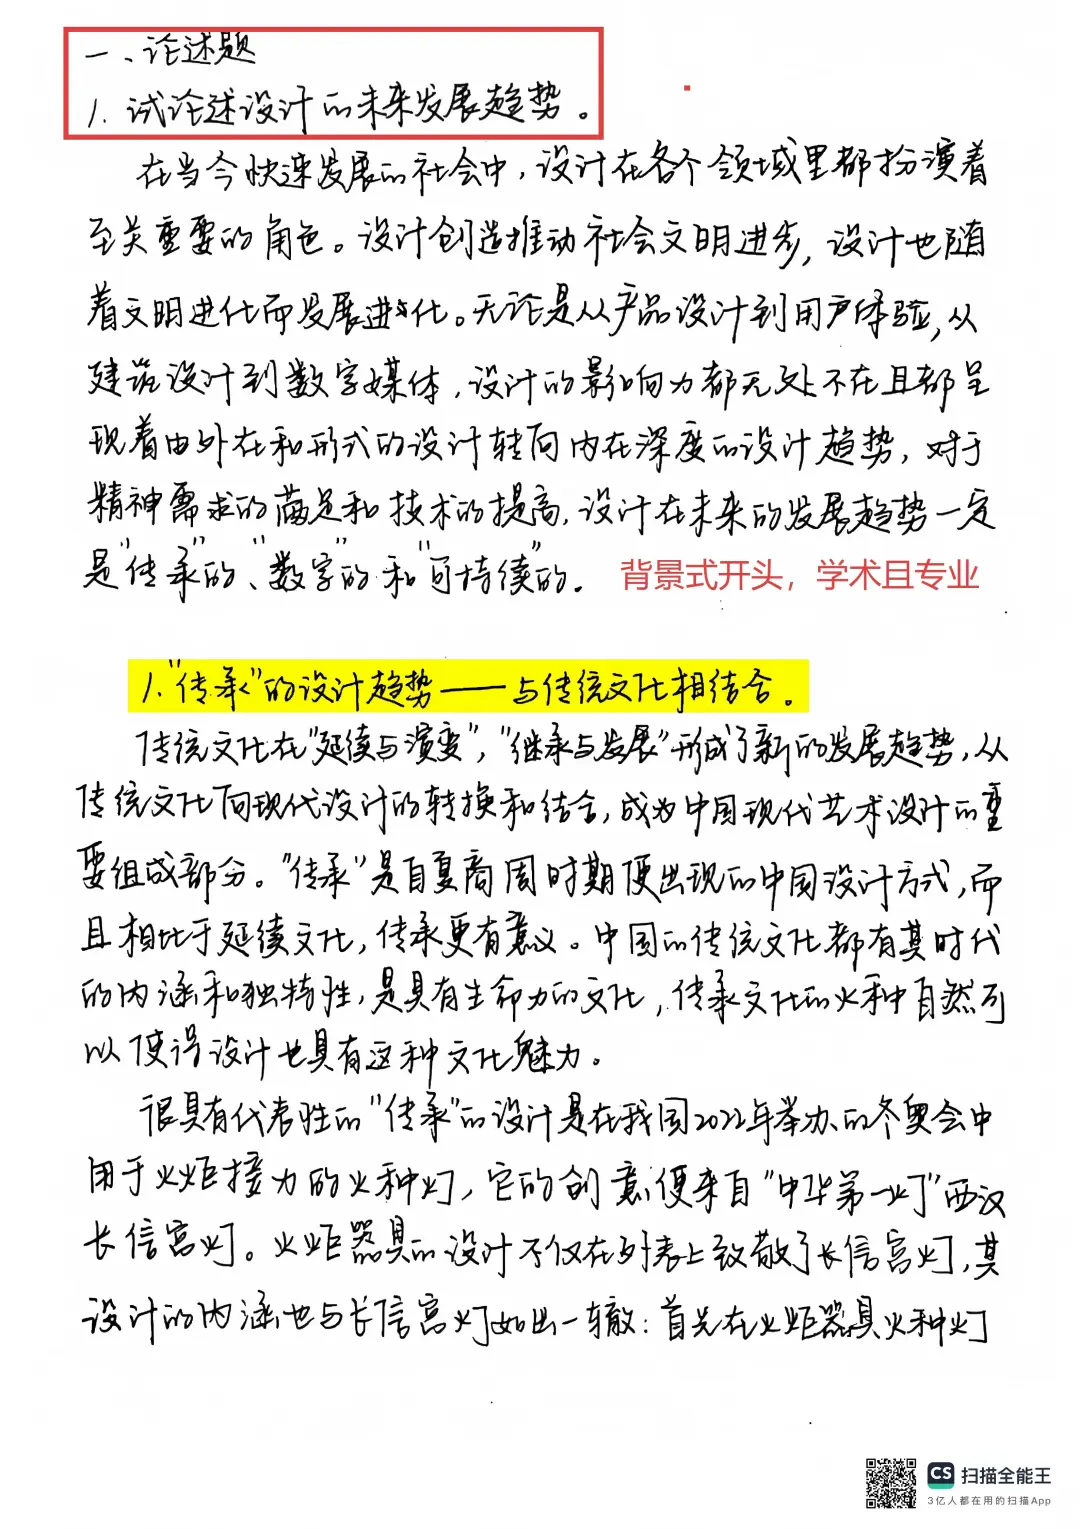 一、论述题
1. 试论述设计的未来发展趋势。
在当今快速发展的社会中，设计在各个领域里都扮演着
至关重要的角色。设计创造推动社会文明进步，设计也随
着文明进化而发展进化。无论是从产品设计到用户体验，从
建筑设计到数字媒体，设计的影响力都无处不在且都呈
现着由外在和形式的设计转向内在深度的设计趋势，对于
精神需求的满足和技术的提高，设计在未来的发展趋势一定
是“传承”的、“数字”的和“可持续”的。
背景式开头，学术且专业
1.“传承”的设计趋势——与传统文化相结合。
传统文化在“延续与演变”，“继承与发展”形成了新的发展趋势，从
传统文化向现代设计的转换和结合，成为中国现代艺术设计的重
要组成部分。“传承”是自夏商周时期便出现的中国设计方式，而
且相比于延续文化，传承更有意义。中国的传统文化都有其时代
的内涵和独特性，是具有生命力的文化，传承文化的火种自然可
以使得设计也具有这种文化魅力。
很具有代表性的“传承”的设计是在我国2022年举办的冬奥会中
用于火炬接力的火种灯，它的创意便来自“中华第一灯”西汉
长信宫灯。火炬器具的设计不仅在外表上致敬了长信宫灯，其
设计的内涵也与长信宫灯如出一辙：首先在火炬器具火种灯
CS 扫描全能王
3亿人都在用的扫描App